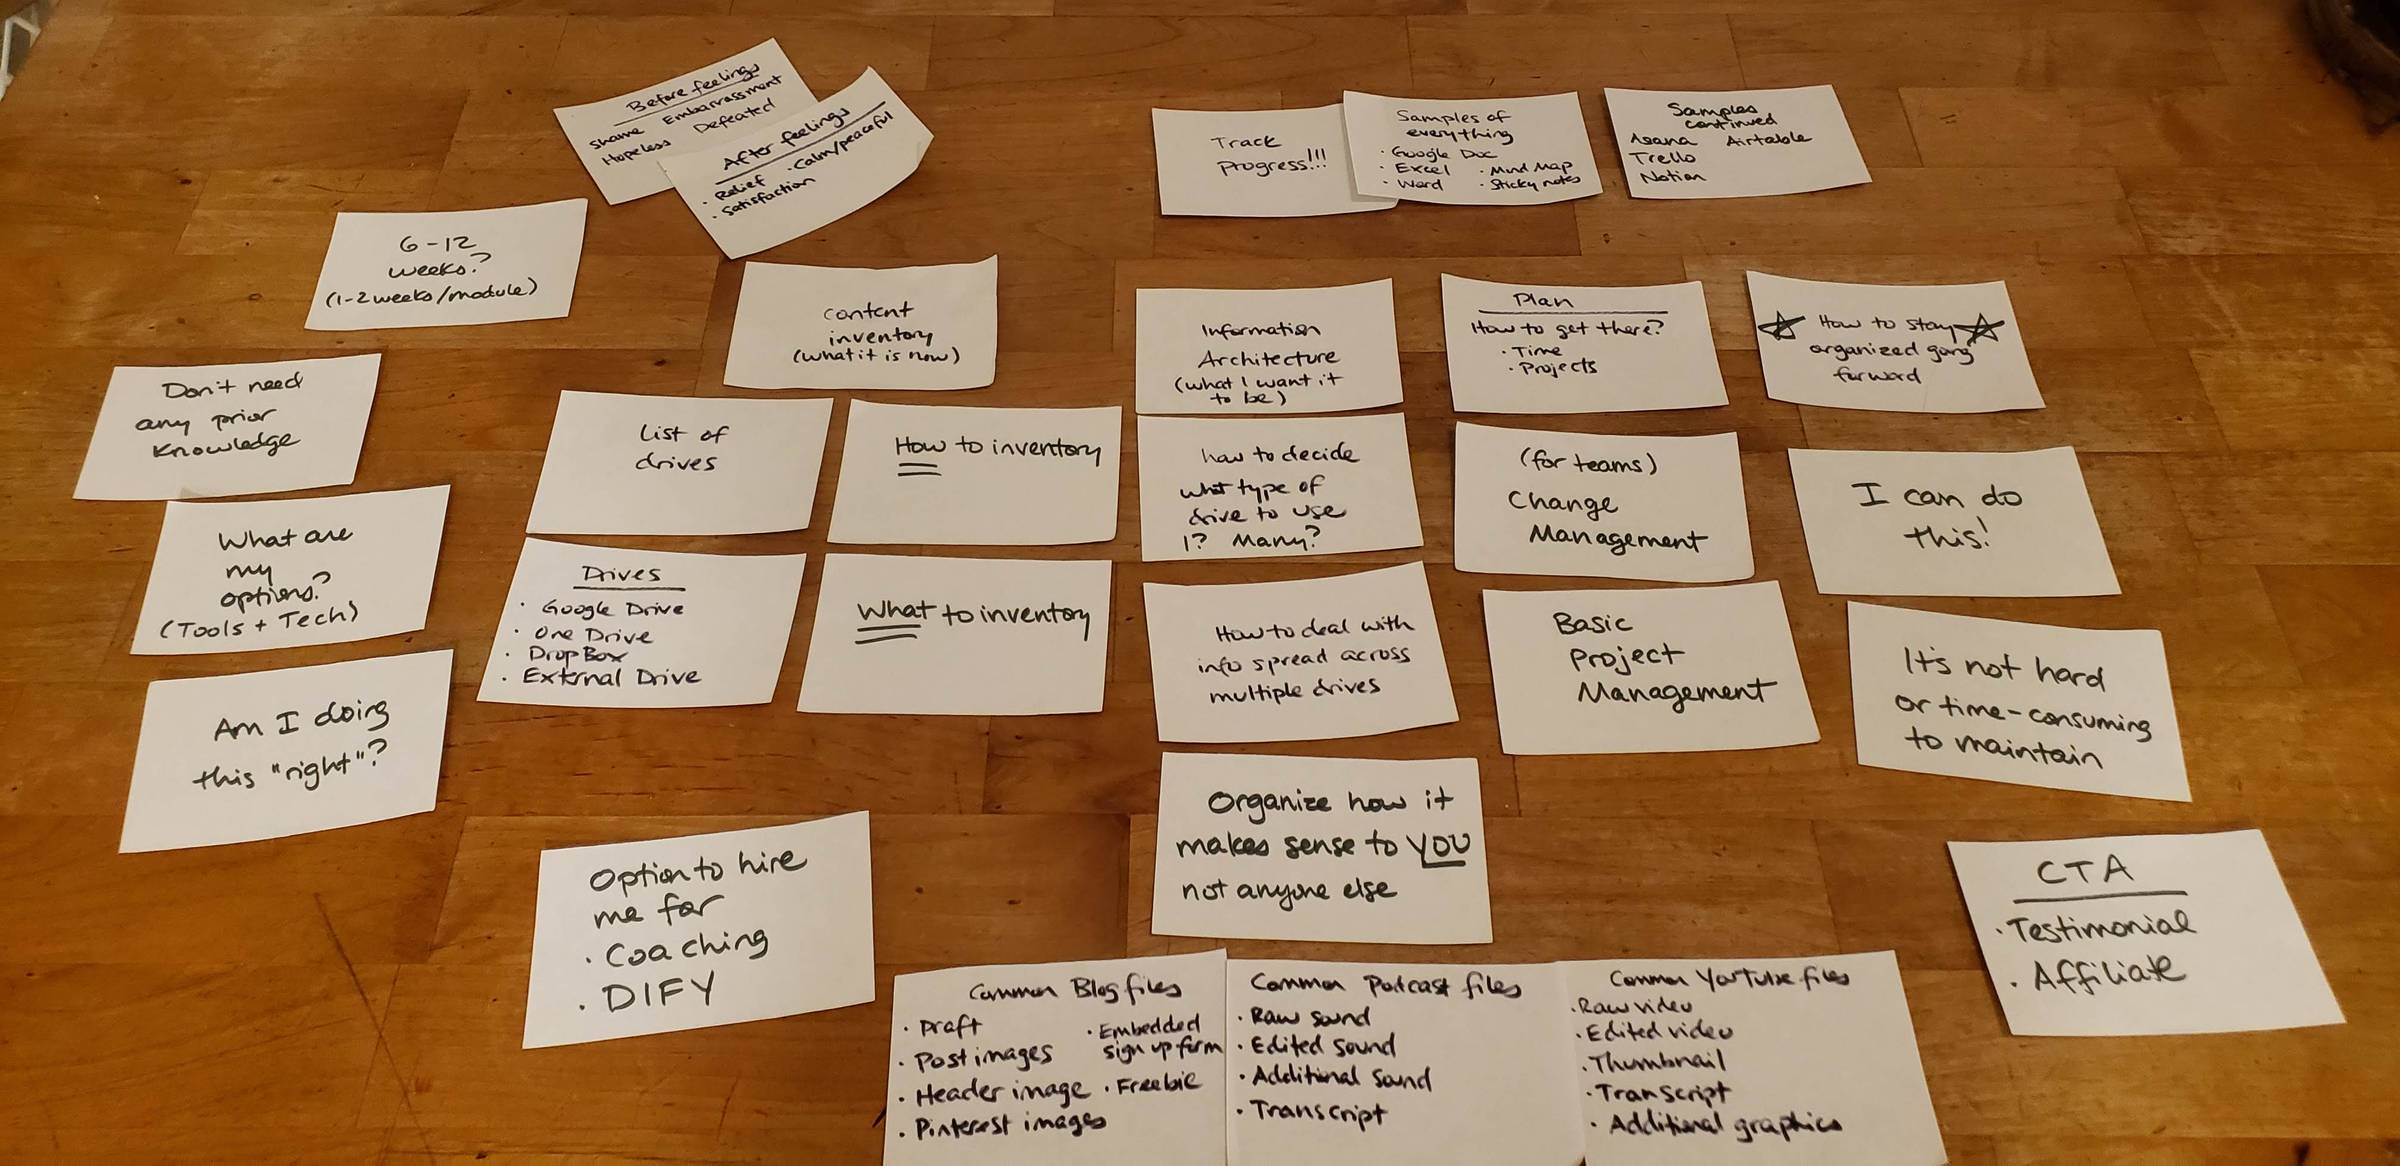 Before feelings
Shame Embarrassment
Hopeless Defeated
After feelings
· Relief · Calm/peaceful
· Satisfaction
Track
Progress!!!
Samples of
everything
· Google Doc
· Excel · Mind Map
· Word · Sticky notes
Samples
continued
Asana Airtable
Trello
Notion
6-12
weeks?
(1-2 weeks/module)
Content
inventory
(what it is now)
Information
Architecture
(what I want it
to be)
Plan
How to get there?
· Time
· Projects
How to stay
organized gong
forward
Don't need
any prior
knowledge
List of
drives
How to inventory
how to decide
what type of
drive to use
1? Many?
(for teams)
Change
Management
I can do
this!
What are
my
options?
(Tools + Tech)
Drives
· Google Drive
· One Drive
· DropBox
· External Drive
What to inventory
How to deal with
info spread across
multiple drives
Basic
Project
Management
It's not hard
or time-consuming
to maintain
Am I doing
this "right"?
Option to hire
me for
· Coaching
· DIFY
Organize how it
makes sense to YOU
not anyone else
CTA
· Testimonial
· Affiliate
Common Blog files
· Draft
· Post images
· Header image
· Pinterest images
· Embedded
sign up form
· Freebie
Common Podcast files
· Raw sound
· Edited sound
· Additional sound
· Transcript
Common YouTube files
· Raw video
· Edited video
· Thumbnail
· Transcript
· Additional graphics